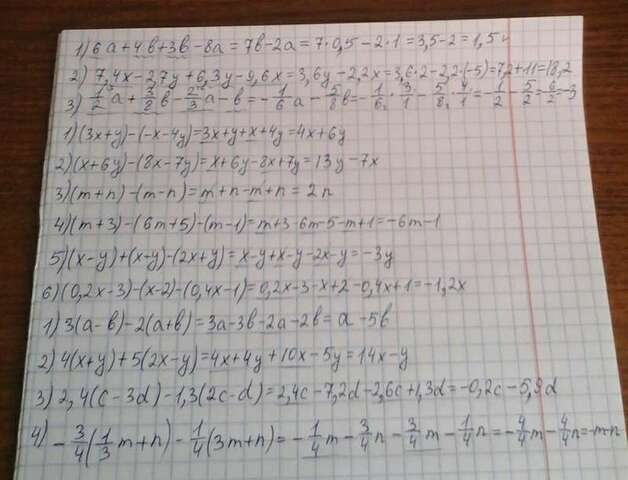 1) 6a+4b+3b-8a=7b-2a=7·0,5-2·1=3,5-2=1,5
2) 7,4x-2,7y+6,3y-9,6x=3,6y-2,2x=3,6·2-2,2·(-5)=7,2+11=18,2
3) 1/2a+3/8b-2/3a-b=-1/6a-5/8b=-1/6·3/1-5/8·4/1=-1/2-5/2=6/2=-3
1)(3x+y)-(-x-4y)=3x+y+x+4y=4x+6y
2)(x+6y)-(8x-7y)=x+6y-8x+7y=13y-7x
3)(m+n)-(m-n)=m+n-m+n=2n
4)(m+3)-(6m+5)-(m-1)=m+3-6m-5-m+1=-6m-1
5)(x-y)+(x-y)-(2x+y)=x-y+x-y-2x-y=-3y
6)(0,2x-3)-(x-2)-(0,4x-1)=0,2x-3-x+2-0,4x+1=-1,2x
1)3(a-b)-2(a+b)=3a-3b-2a-2b=a-5b
2)4(x+y)+5(2x-y)=4x+4y+10x-5y=14x-y
3)2,4(c-3d)-1,3(2c-d)=2,4c-7,2d-2,6c+1,3d=-0,2c-5,9d
4) -3/4(1/3m+n)-1/4(3m+n)=-1/4m-3/4n-3/4m-1/4n=-4/4m-4/4n=-m-n